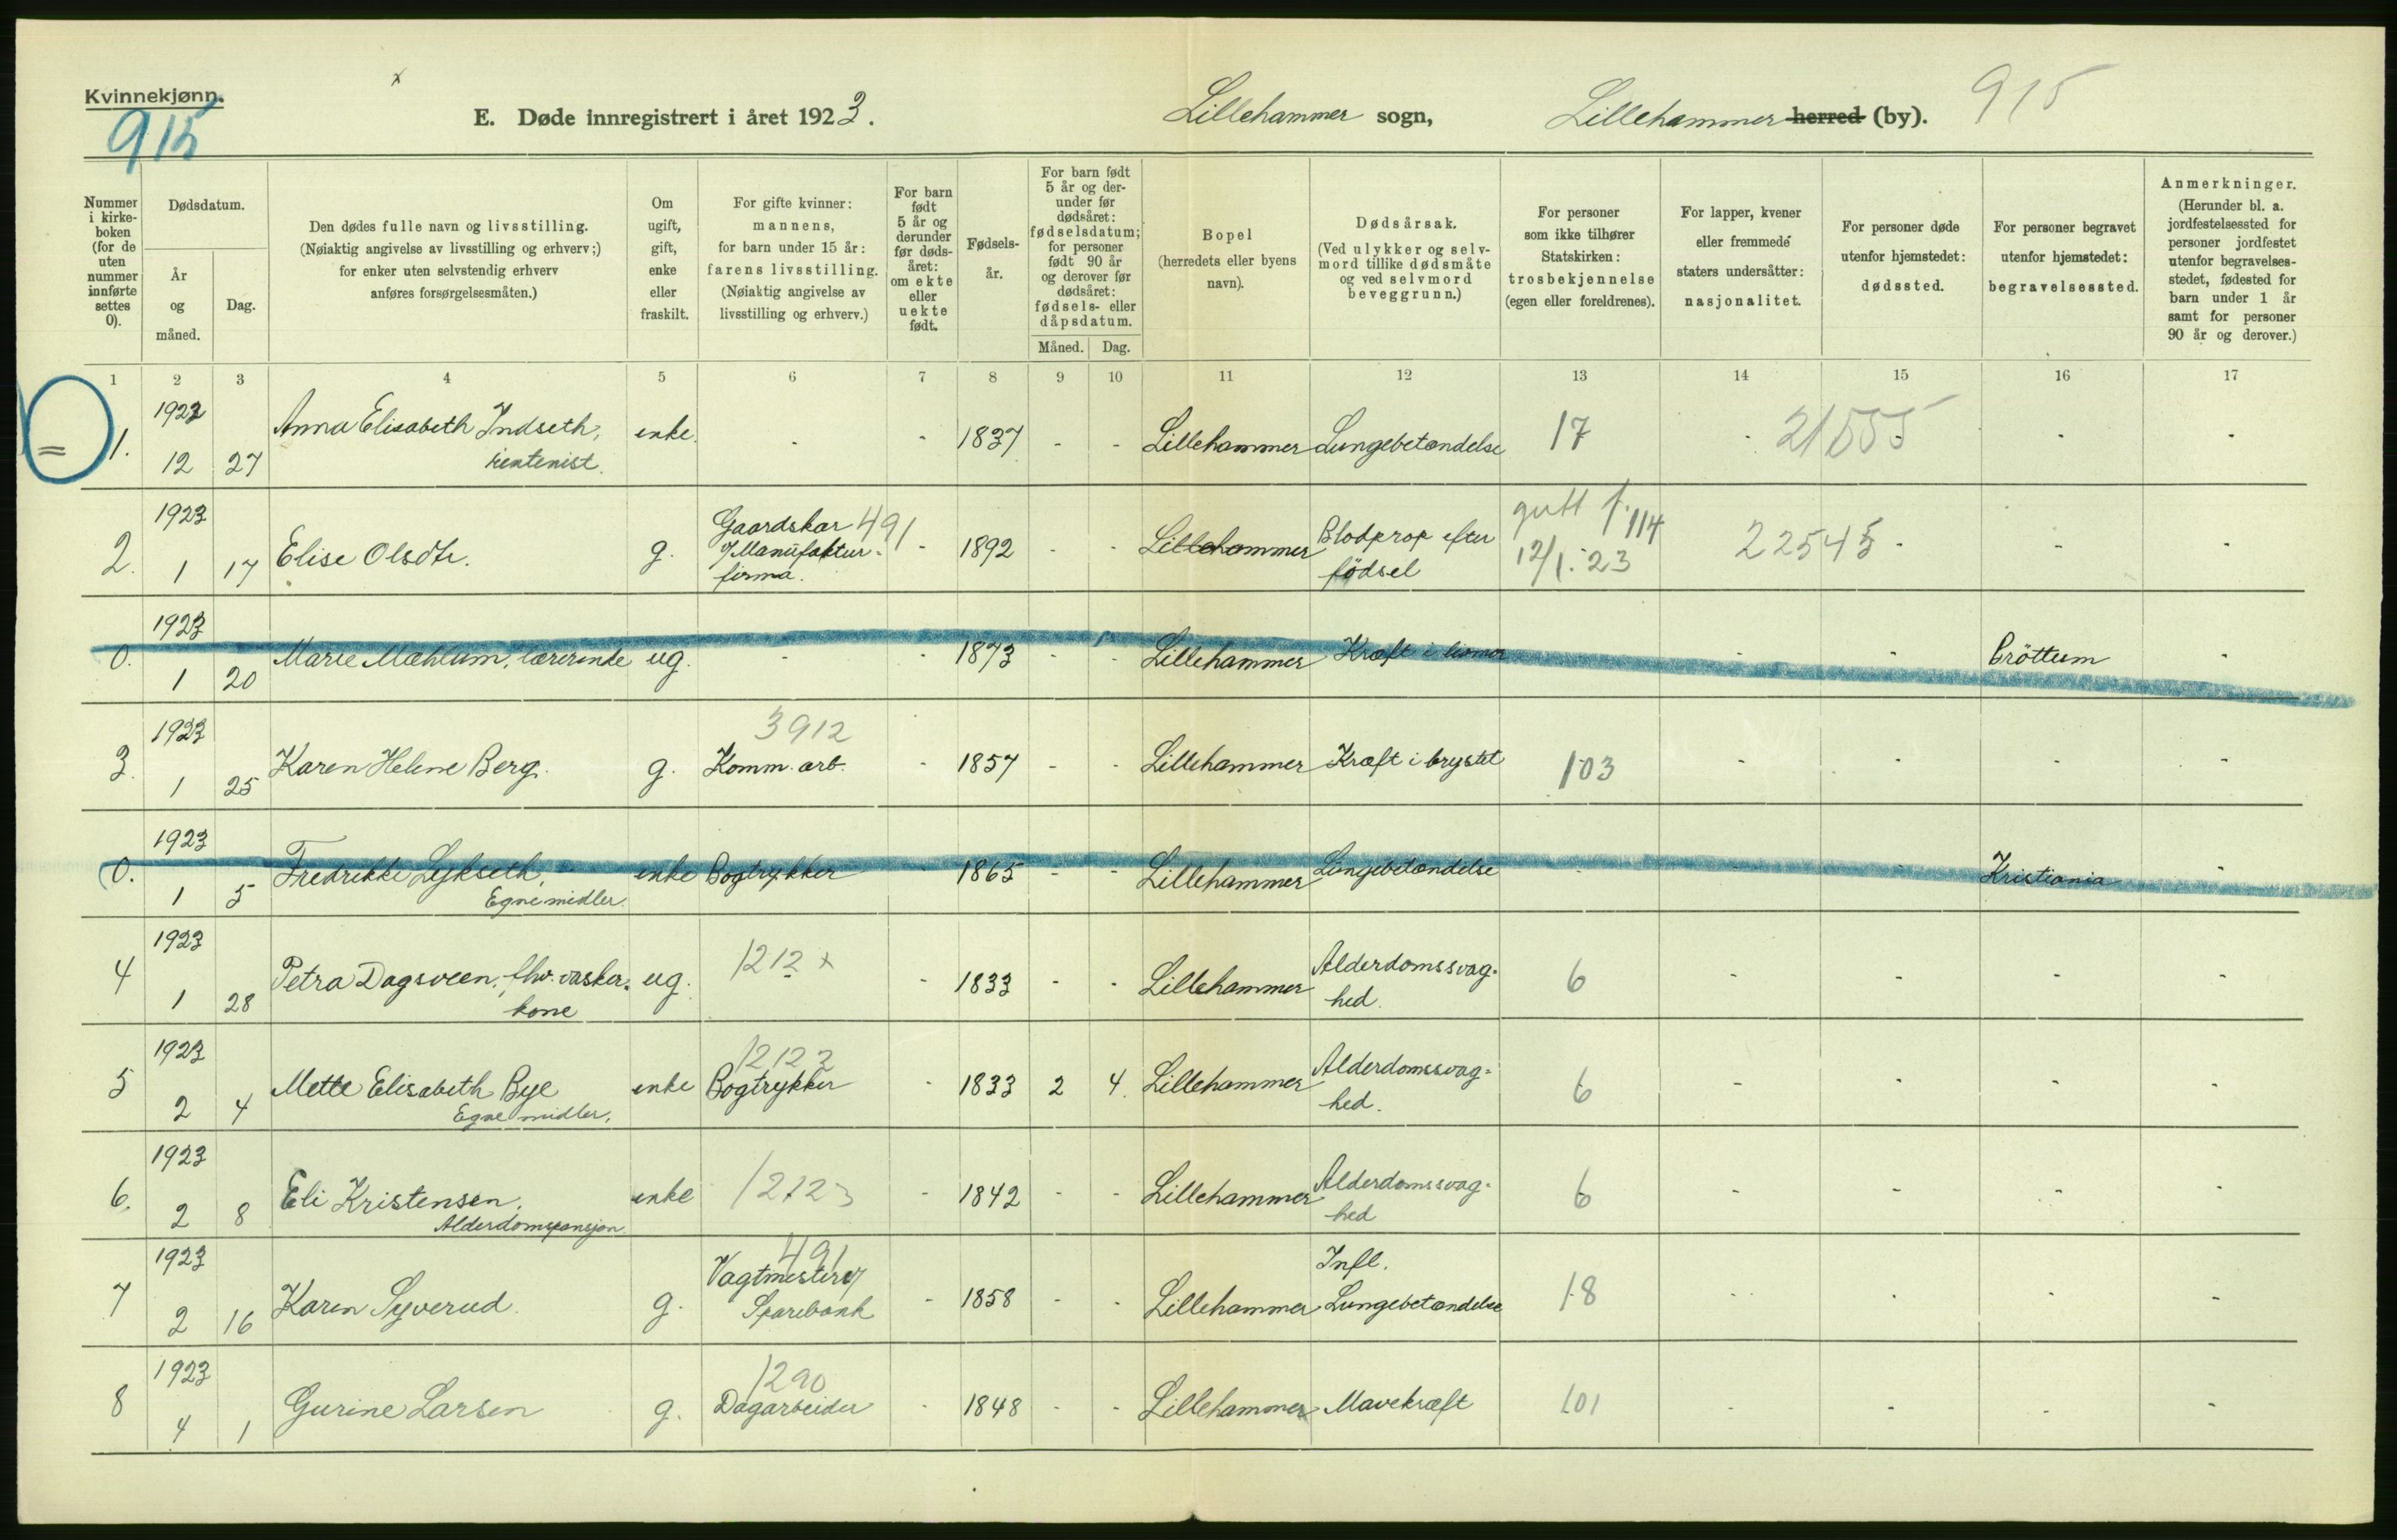 Kvinnekjønn.
915
x
E. Døde innregistrert i året 1923.
Lillehammer sogn,
Lillehammer herred (by).
915
Nummer i kirke-boken (for de uten nummer innførte settes 0).
Dødsdatum.
År og måned.
Dag.
Den dødes fulle navn og livsstilling.
(Nøiaktig angivelse av livsstilling og erhverv;)
for enker uten selvstendig erhverv
anføres forsørgelsesmåten.)
Om ugift, gift, enke eller fraskilt.
For gifte kvinner: mannens, for barn under 15 år: farens livsstilling. (Nøiaktig angivelse av livsstilling og erhverv.)
For barn født 5 år og derunder før døds-året: om ekte eller uekte født.
Fødsels-år.
For barn født 5 år og der-under før dødsåret: fødselsdatum; for personer født 90 år og derover før dødsåret: fødsels- eller dåpsdatum.
Måned. Dag.
Bopel (herredets eller byens navn).
Dødsårsak. (Ved ulykker og selv-mord tillike dødsmåte og ved selvmord beveggrunn.)
For personer som ikke tilhører Statskirken: trosbekjennelse (egen eller foreldrenes).
For lapper, kvener eller fremmede staters undersåtter: nasjonalitet.
For personer døde utenfor hjemstedet: dødssted.
For personer begravet utenfor hjemstedet: begravelsessted.
Anmerkninger. (Herunder bl. a. jordfestelsessted for personer jordfestet utenfor begravelses-stedet, fødested for barn under 1 år samt for personer 90 år og derover.)
1 2 3 4 5 6 7 8 9 10 11 12 13 14 15 16 17
= 1. 1922 12 27 Anna Elisabeth Indseth, rentenist. enke. - - 1837 - - Lillehammer Lungebetændelse 17 - 21555 - -
2. 1923 1 17 Elise Olsdtr. g. Gaardskar 491 i/Manufaktur-firma. - 1892 - - Lillehammer Blodprop efter födsel gutt f. 114 12/1.-23 22545 - - -
0. 1923 1 20 Marie Mæhlum, lærerinde ug. - - 1873 - - Lillehammer Kræft i - - Bröttum -
3. 1923 1 25 Karen Helene Berg. g. 3912 Komm. arb. - 1857 - - Lillehammer Kræft i brystet 103 - - - -
0. 1923 1 5 Fredrikke Lykseth, Egne midler. enke Bogtrykker - 1865 - - Lillehammer Lungebetændelse - - - Kristiania -
4 1923 1 28 Petra Dagsveen, fhv. vaske-kone ug. 1212 x - - 1833 - - Lillehammer Alderdomssvag-hed. 6 - - - -
5 1923 2 4 Mette Elisabeth Bye Egne midler. enke 12122 Bogtrykker - 1833 2 4. Lillehammer Alderdomssvag-hed. 6 - - - -
6. 1923 2 8 Eli Kristensen. Alderdomspensjon. enke 12123 - 1842 - - Lillehammer Alderdomssvag-hed 6 - - - -
7 1923 2 16 Karen Syverud. g. 491 Vagtmester v/ Sparebank - 1858 - - Lillehammer Infl. Lungebetændelse 18 - - - -
8 1923 4 1 Gurine Larsen g. 1290 Dagarbeider - 1848 - - Lillehammer Mavekræft 101 - - - -